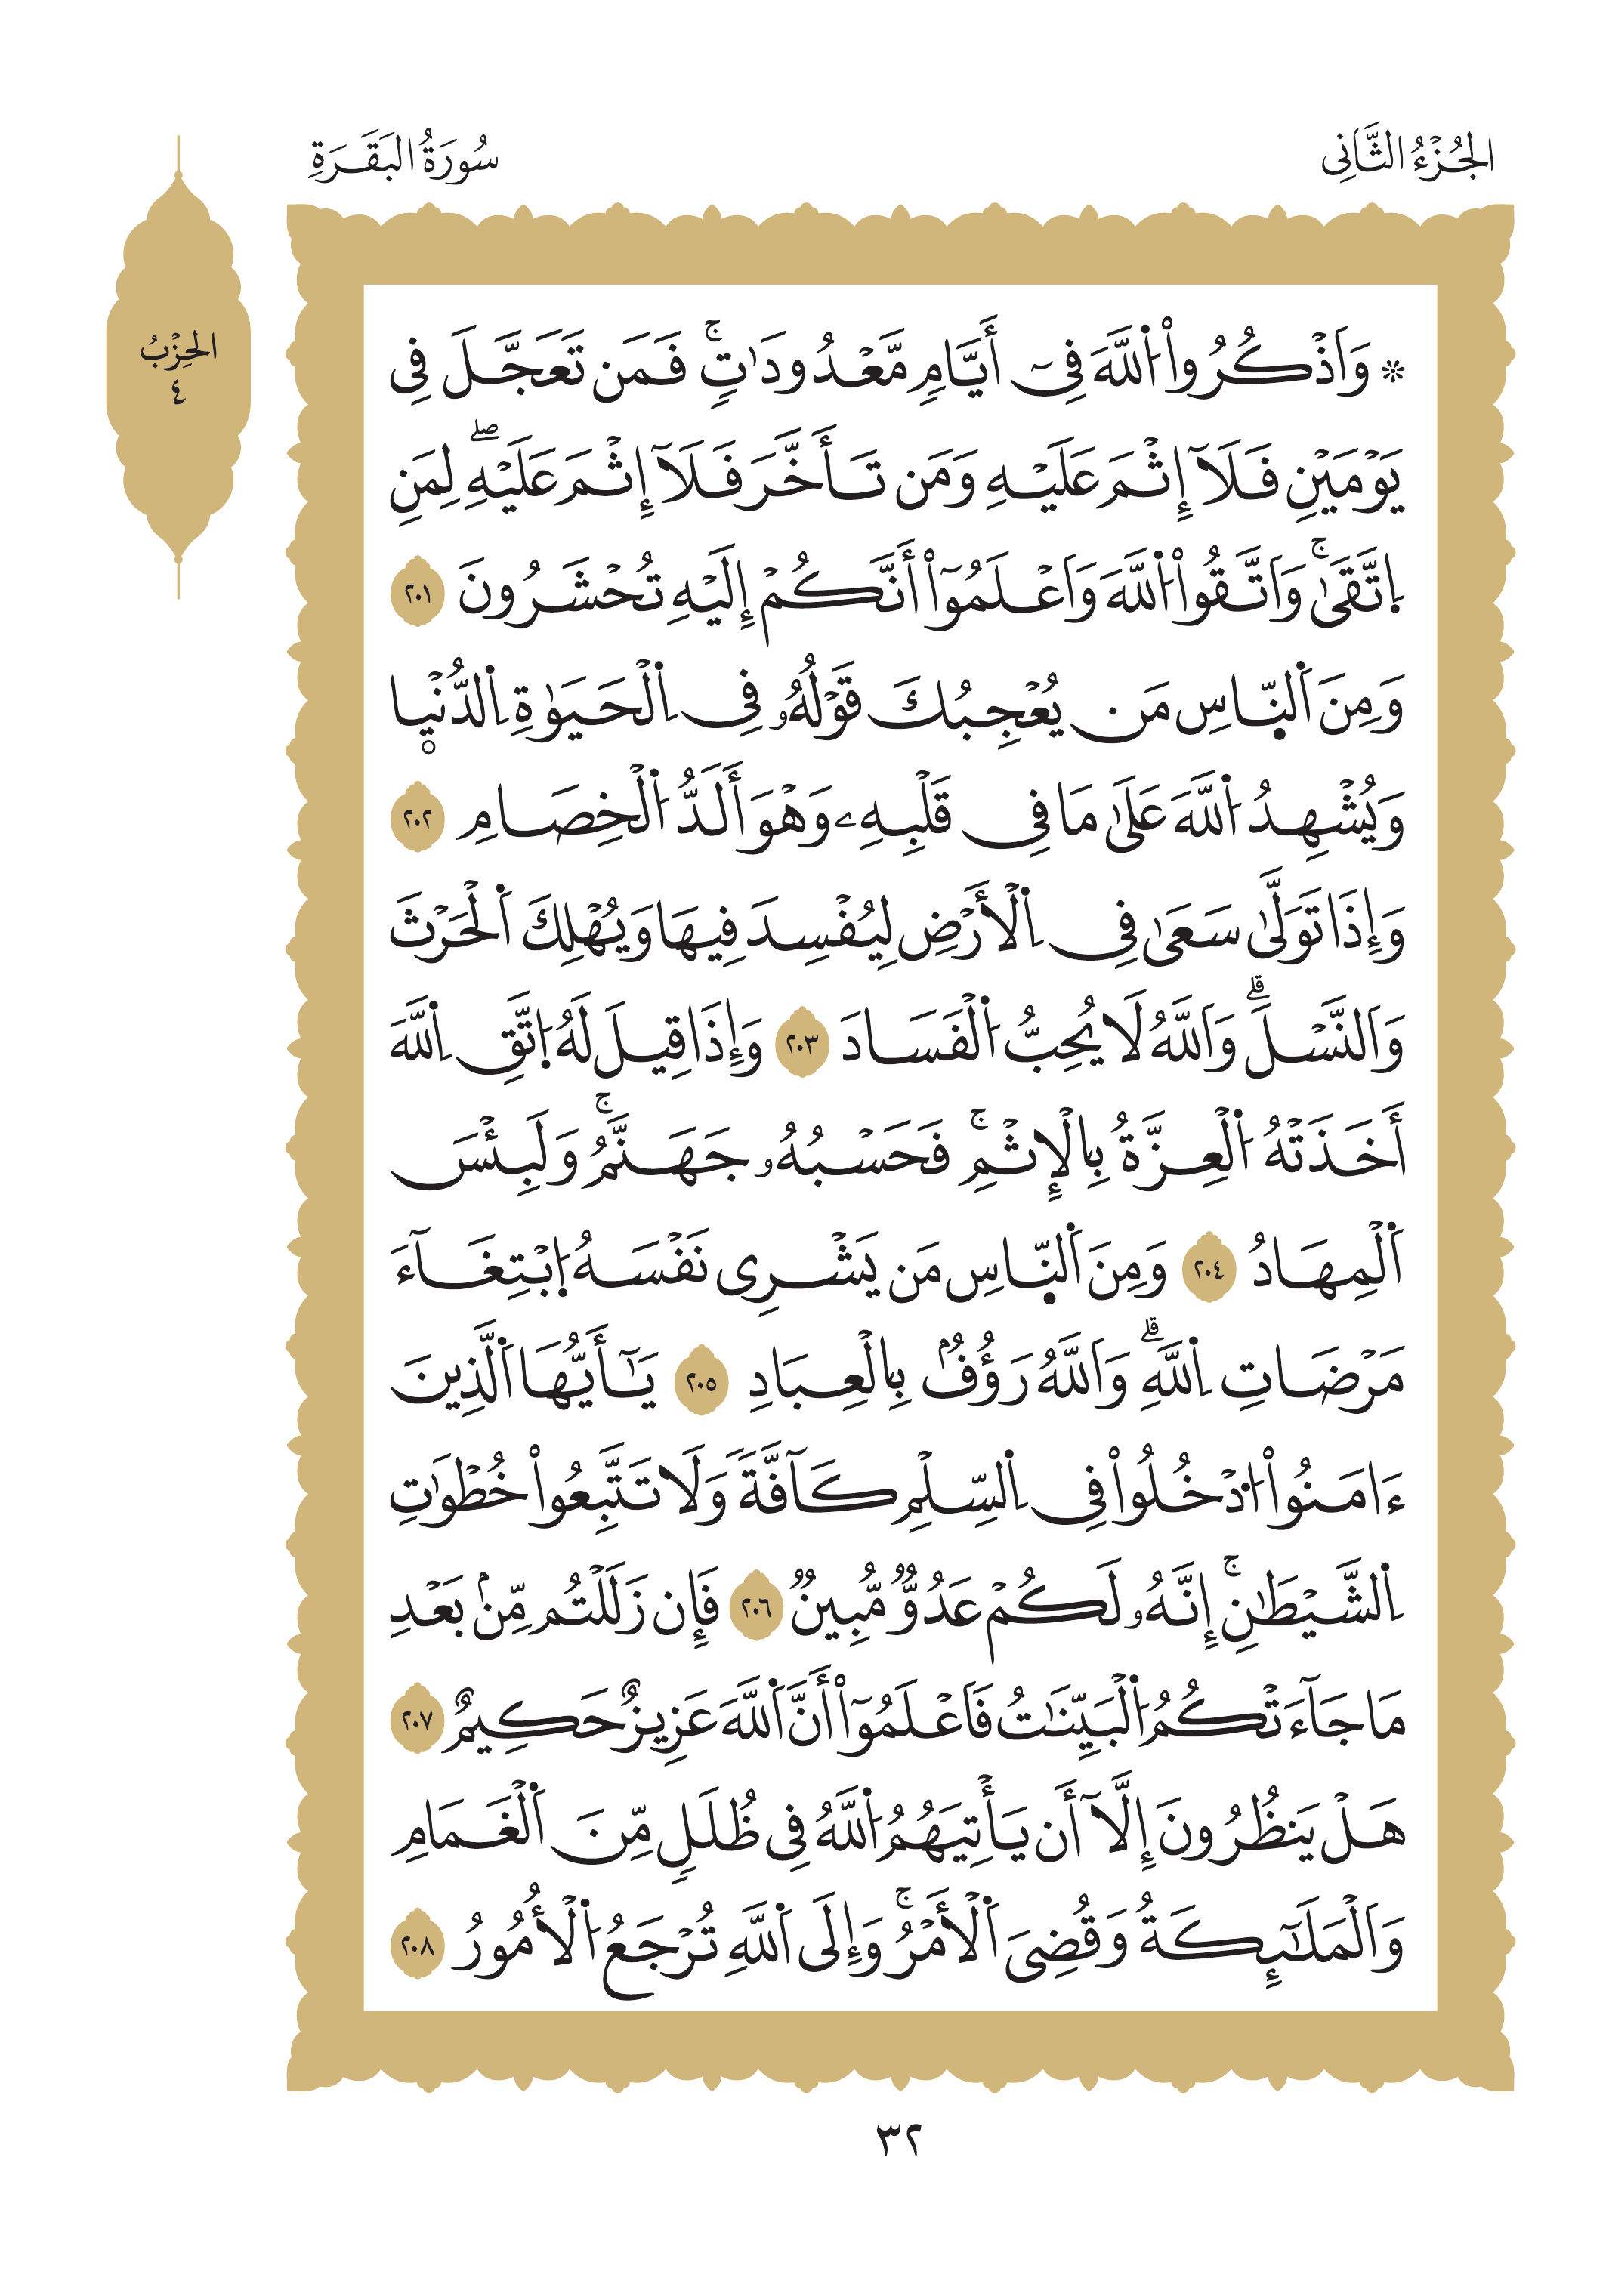 الجُزْءُ الثَّانِي
سُورَةُ البَقَرَةِ
الحِزْبُ
٤
۞ وَاَذْكُرُواْ اُ۬للَّهَ فِےٓ أَيَّامٖ مَّعْدُودَٰتٖۚ فَمَن تَعَجَّلَ فِي
يَوْمَيْنِ فَلَآ إِثْمَ عَلَيْهِ وَمَن تَأَخَّرَ فَلَآ إِثْمَ عَلَيْهِۖ لِمَنِ
اِ۪تَّقَىٰۚ وَاَتَّقُواْ اُ۬للَّهَ وَاَعْلَمُوٓاْ أَنَّكُمْ إِلَيْهِ تُحْشَرُونَ ٢٠١
وَمِنَ اَ۬لنّ۪اسِ مَن يُعْجِبُكَ قَوْلُهُۥ فِے اِ۬لْحَيَوٰةِ اِ۬لدُّنْي۪ا
وَيُشْهِدُ اُ۬للَّهَ عَلَىٰ مَا فِے قَلْبِهِۦ وَهْوَ أَلَدُّ اُ۬لْخِصَامِ ٢٠٢
وَإِذَا تَوَلَّىٰ سَعَىٰ فِے اِ۬لْأَرْضِ لِيُفْسِدَ فِيهَا وَيُهْلِكَ اَ۬لْحَرْثَ
وَاَلنَّسْلَۗ وَاَللَّهُ لَا يُحِبُّ اُ۬لْفَسَادَ ٢٠٣ وَإِذَا قِيلَ لَهُ اُ۪تَّقِ اِ۬للَّهَ
أَخَذَتْهُ اُ۬لْعِزَّةُ بِالْإِثْمِۚ فَحَسْبُهُۥ جَهَنَّمُۚ وَلَبِئْسَ
اَ۬لْمِهَادُ ٢٠٤ وَمِنَ اَ۬لنّ۪اسِ مَن يَشْرِى نَفْسَهُ اُ۪بْتِغَآءَ
مَرْضَاتِ اِ۬للَّهِۗ وَاَللَّهُ رَؤُفُۢ بِالْعِبَادِ ٢٠٥ يَٰٓأَيُّهَا اَ۬لَّذِينَ
ءَامَنُواْ اُ۟دْخُلُواْ فِے اِ۬لسِّلْمِ كَآفَّةٗ وَلَا تَتَّبِعُواْ خُطْوَٰتِ
اِ۬لشَّيْطَٰنِۚ إِنَّهُۥ لَكُمْ عَدُوّٞ مُّبِينٞ ٢٠٦ فَإِن زَلَلْتُم مِّنۢ بَعْدِ
مَا جَآءَتْكُمُ اُ۬لْبَيِّنَٰتُ فَاَعْلَمُوٓاْ أَنَّ اَ۬للَّهَ عَزِيزٌ حَكِيمٌ ٢٠٧
هَلْ يَنظُرُونَ إِلَّآ أَن يَأْتِيَهُمُ اُ۬للَّهُ فِي ظُلَلٖ مِّنَ اَ۬لْغَمَامِ
وَاَلْمَلَٰٓئِكَةُ وَقُضِيَ اَ۬لْأَمْرُۚ وَإِلَى اَ۬للَّهِ تُرْجَعُ اُ۬لْأُمُورُ ٢٠٨
٣٢